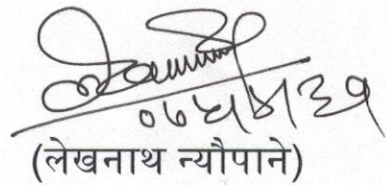 ०७५/४/३१
(लेखनाथ न्यौपाने)